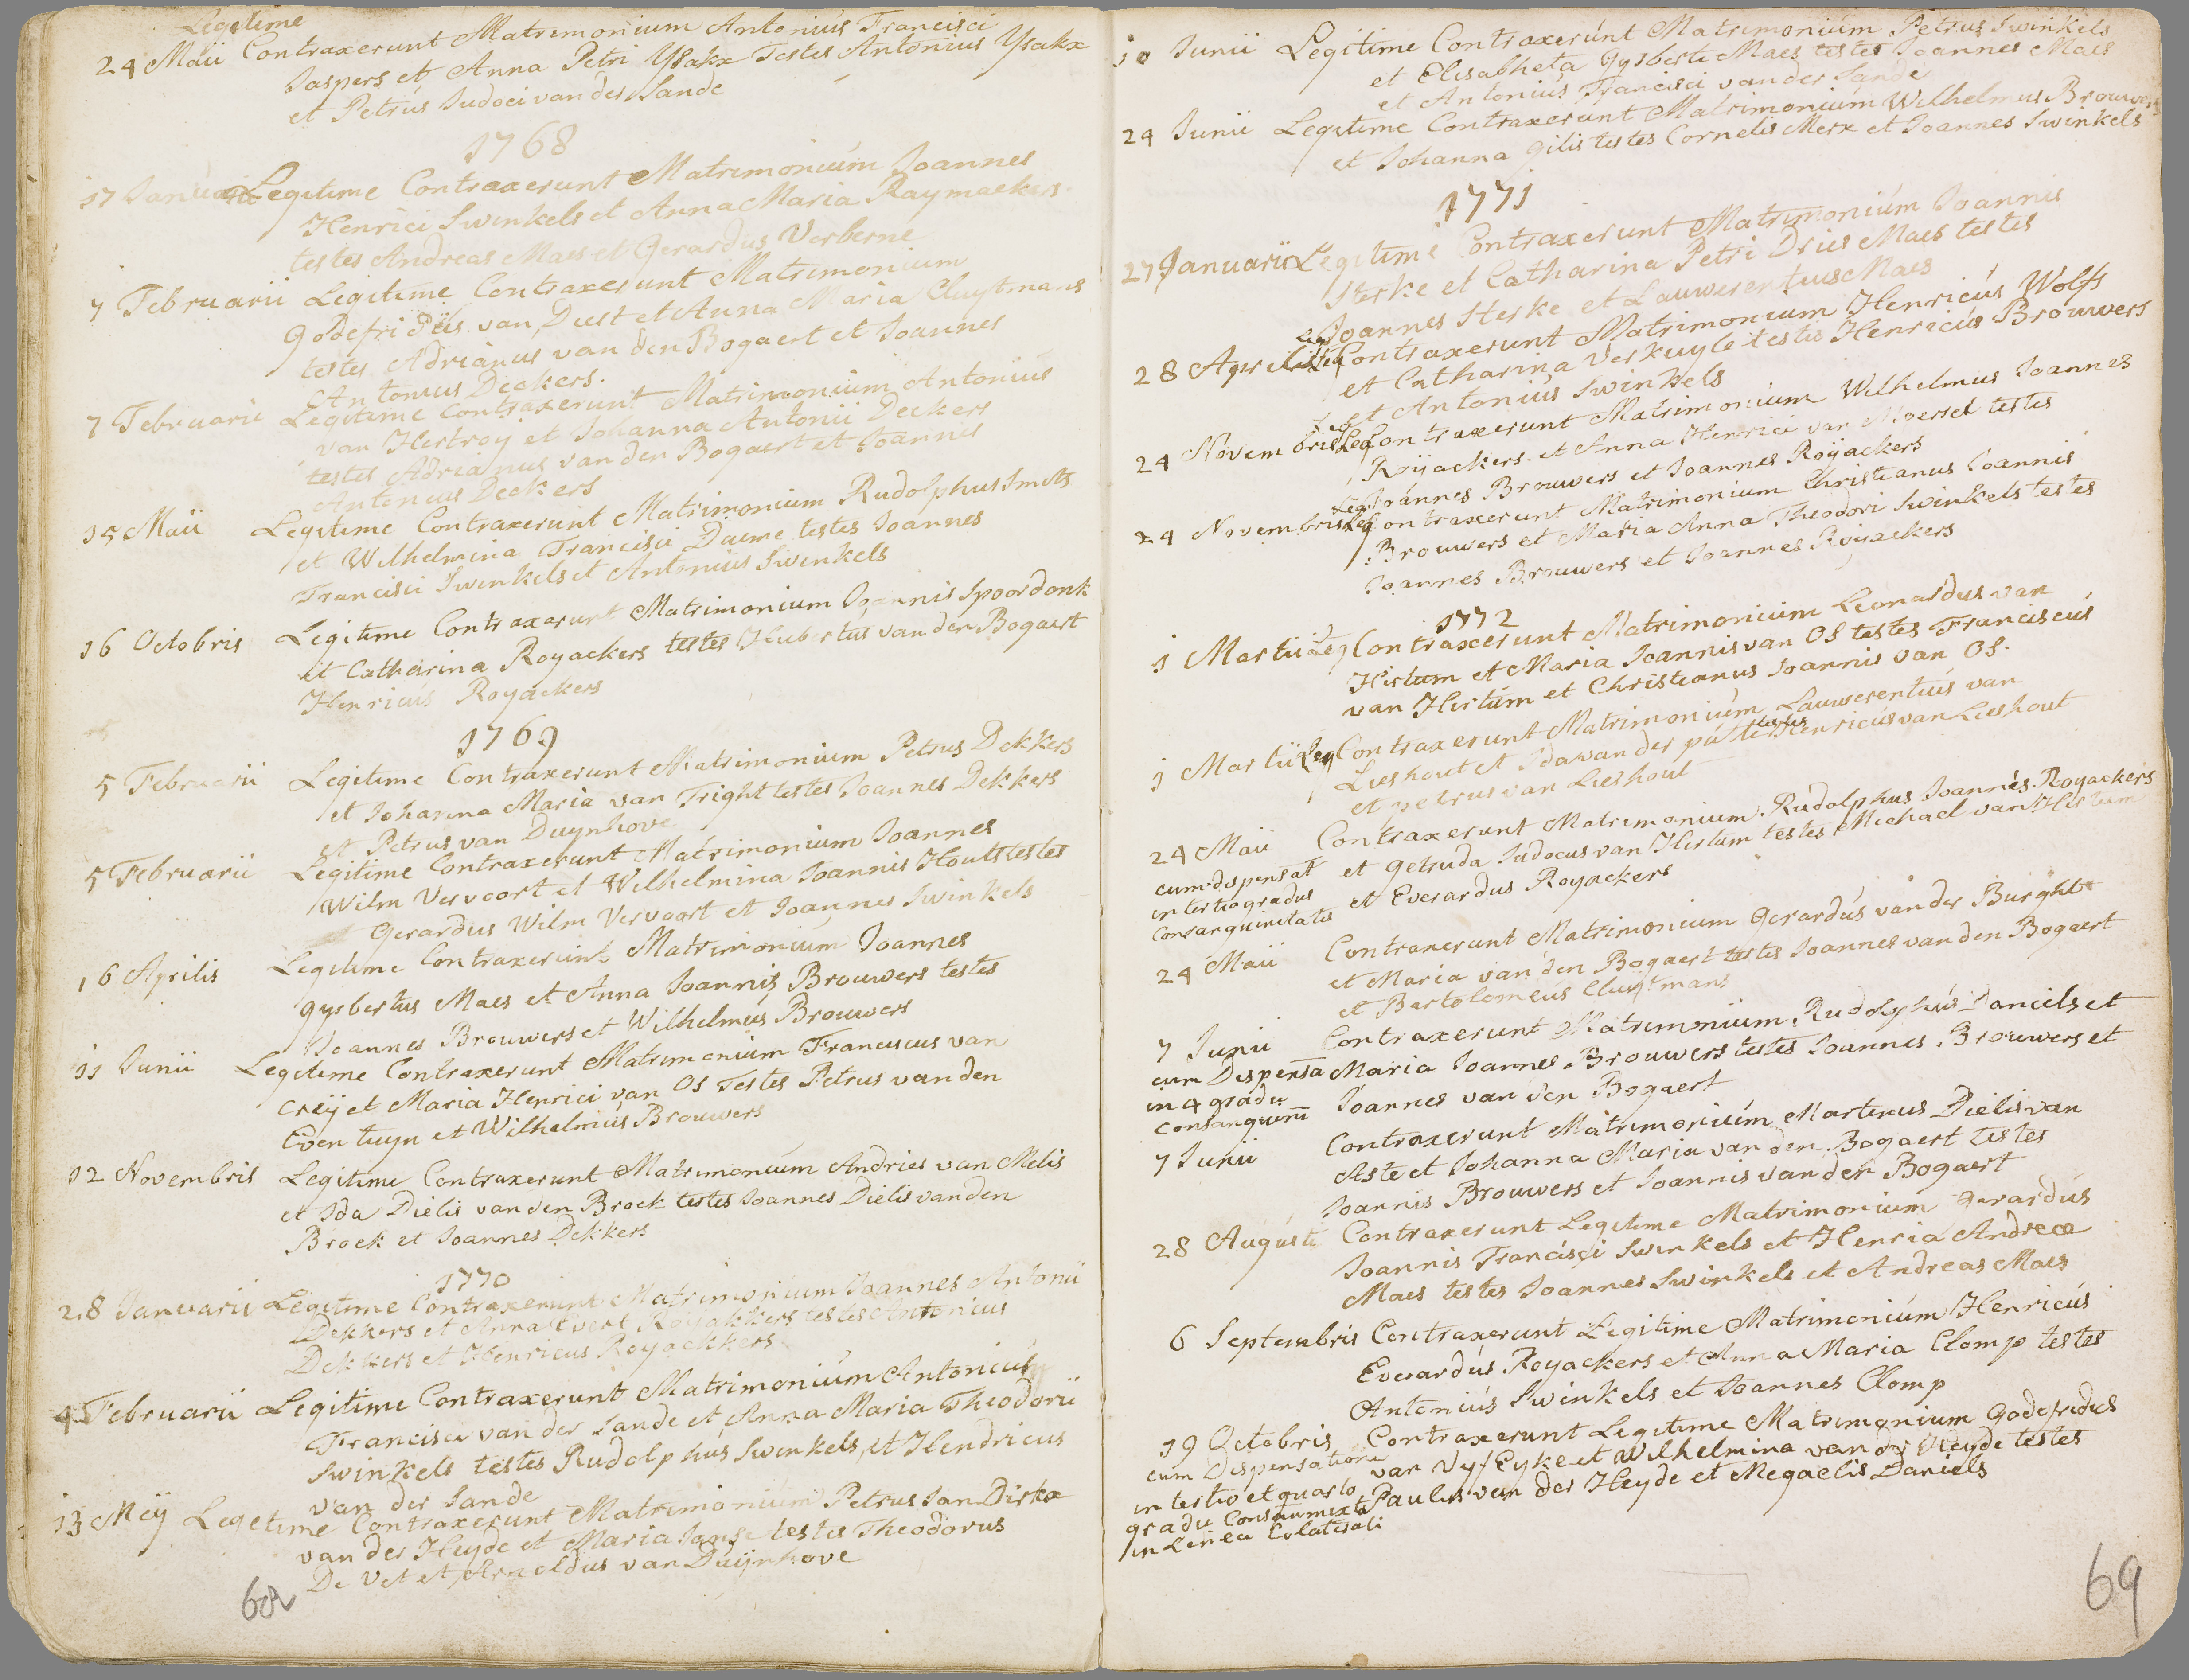 Legitime
24 Maii Contraxerunt Matrimonium Antonius Francisci
Jaspers et Anna Petri Ysakx Testes Antonius Ysakx
et Petrus Judoci van der Sande
1768
17 Januarii Legitime Contraxerunt Matrimonium Joannes
Henrici Swinkels et Anna Maria Raymackers
testes Andreas Maes et Gerardus Verberne
7 Februarii Legitime Contraxerunt Matrimonium
Godefridus van Dust et Anna Maria Cluytmans
testes Adrianus van den Bogaert et Joannes
Antonius Deckers.
7 Februarii Legitime Contraxerunt Matrimonium Antonius
van Hertroy et Johanna Antonii Deckers
testes Adrianus van den Bogaert et Joannes
Antonius Deckers
15 Maii Legitime Contraxerunt Matrimonium Rudolphus Smets
et Wilhelmina Francisci Daeme testes Joannes
Francisci Swinkels et Antonius Swinkels
16 Octobris Legitime Contraxerunt Matrimonium Joannis Spoordonk
et Catharina Royackers testes Hubertus van den Bogaert
Henricus Royackers
1769
5 Februarii Legitime Contraxerunt Matrimonium Petrus Dekkers
et Johanna Maria van Tright testes Joannes Dekkers
et Petrus van Duynhove
5 Februarii Legitime Contraxerunt Matrimonium Joannes
Wilm Vervoort et Wilhelmina Joannis Houts testes
Gerardus Wilm Vervoort et Joannes Swinkels
16 Aprilis Legitime Contraxerunt Matrimonium Joannes
gysbertus Maes et Anna Joannis Brouwers testes
Joannes Brouwers et Wilhelmus Brouwers
11 Junii Legitime Contraxerunt Matrimonium Franciscus van
Creij et Maria Henrici van Os Testes Petrus van den
Eventuyn et Wilhelmus Brouwers
12 Novembris Legitime Contraxerunt Matrimonium Andries van Melis
et Ida Dielis van den Broek testes Joannes Dielis van den
Broek et Joannes Dekkers
1770
28 Januarii Legitime Contraxerunt Matrimonium Joannes Antonii
Dekkers et Anna Evert Royakkers testes Antonius
Dekkers et Henricus Royackkers
4 Februarii Legitime Contraxerunt Matrimonium Antonius
Francisci van der Sande et Anna Maria Theodorii
Swinkels testes Rudolphus Swinkels et Hendricus
van der Sande
13 Meij Legetime Contraxerunt Matrimonium Petrus Jan Dirkx
van der Heyde et Maria Janse testes Theodorus
De Vet et Arnoldus van Duijnhove
68
10 Junii Legitime Contraxerunt Matrimonium Petrus Swinkels
et Elisabheta Gysberti Maes testes Joannes Maes
et Antonius Francisci van der Sande
24 Junii Legitime Contraxerunt Matrimonium Wilhelmus Brouwers
et Johanna Gilis testes Cornelis Merx et Joannes Swinkels
1771
27 Januarii Legitime Contraxerunt Matrimonium Joannis
Sterke et Catharina Petri Dries Maes testes
Joannes Sterke et Lauwerentius Maes
28 Aprilis Leg Contraxerunt Matrimonium Henricus Wolfs
et Catharina Verkuyle testes Henricus Brouwers
et Antonius Swinkels
24 Novembris Leg Contraxerunt Matrimonium Wilhelmus Joannes
Roijackers et Anna Henrici van Moersel testes
Joannes Brouwers et Joannes Roijackers
24 Novembris Leg Contraxerunt Matrimonium Christianus Joannis
Brouwers et Maria Anna Theodori Swinkels testes
Joannes Brouwers et Joannes Roijackers
1772
1 Martii Leg Contraxerunt Matrimonium Leonardus van
Hertum et Maria Joannis van Os testes Franciscus
van Hertum et Christianus Joannis van Os.
1 Martii Leg Contraxerunt Matrimonium Lauwerentius van
Lieshout et Ida van der putte testes Henricus van Lieshout
et petrus van Lieshout
24 Maii Contraxerunt Matrimonium Rudolphus Joannes Royackers
cum dispensat et Getruda Judocus van Hertum testes Michael van Hertum
in tertio gradus et Everardus Royackers
Consanguinitatis
24 Maii Contraxerunt Matrimonium Gerardus van der Burght
et Maria van den Bogaert testes Joannes van den Bogaert
et Bartolomeus Cluytmans
7 Junii Contraxerunt Matrimonium Rudolphus Daniels et
cum Dispensa Maria Joannes Brouwers testes Joannes Brouwers et
in 4 gradu Joannes van den Bogaert
Consanguini
7 Junii Contraxerunt Matrimonium Martinus Dielis van
Aste et Johanna Maria van den Bogaert testes
Joannis Brouwers et Joannis van den Bogaert
28 Augusti Contraxerunt Legitime Matrimonium Gerardus
Joannis Francisci Swinkels et Henrica Andreæ
Maes testes Joannes Swinkels et Andreas Maes
6 Septembris Contraxerunt Legitime Matrimonium Henricus
Everardus Royackers et Anna Maria Clomp testes
Antonius Swinkels et Joannes Clomp
19 Octobris Contraxerunt Legitime Matrimonium Godefridus
cum Dispensatione van Vyf Eyke et Wilhelmina van der Heyde testes
in tertio et quarto Paulus van der Heyde et Megaelis Daniels
gradu Consa mixta
in Linea Colaterali
69